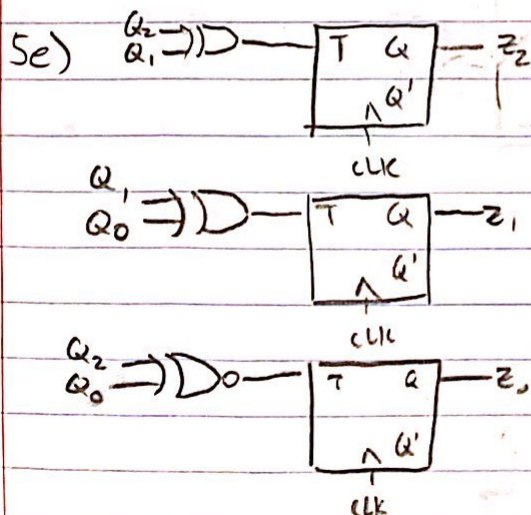 5e) Q2 Q1 T Q Z2
Q'
CLK
Q1
Q0 T Q Z1
Q'
CLK
Q2
Q0 T Q Z0
Q'
CLK